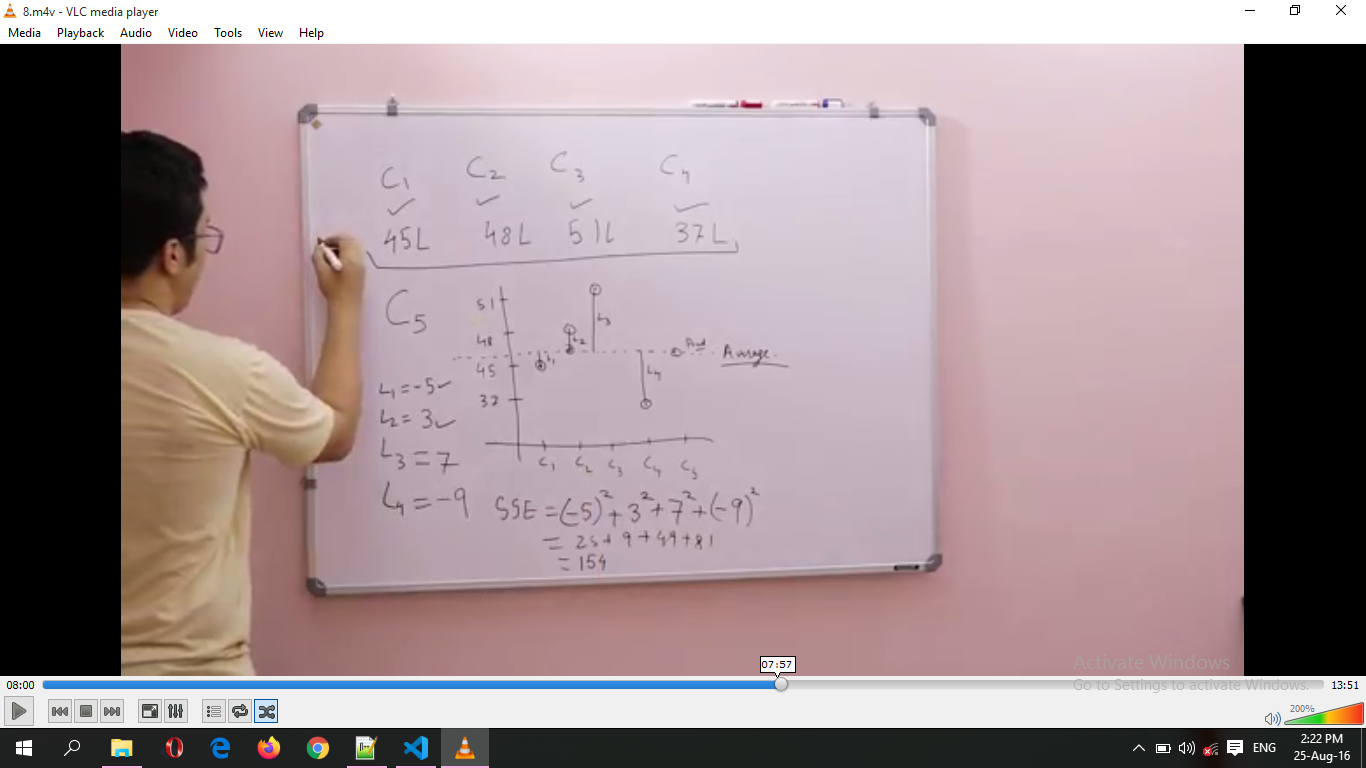 8.m4v - VLC media player
Media Playback Audio Video Tools View Help
C1 C2 C3 C4
45L 48L 51L 37L
C5
51
48
45
37
L1
L2
L3
L4
Average.
C1 C2 C3 C4 C5
L1 = -5
L2 = 3
L3 = 7
L4 = -9
SSE = (-5)² + 3² + 7² + (-9)²
= 25 + 9 + 49 + 81
= 154
07:57
08:00
13:51
Activate Windows
Go to Settings to activate Windows.
200%
ENG
2:22 PM
25-Aug-16